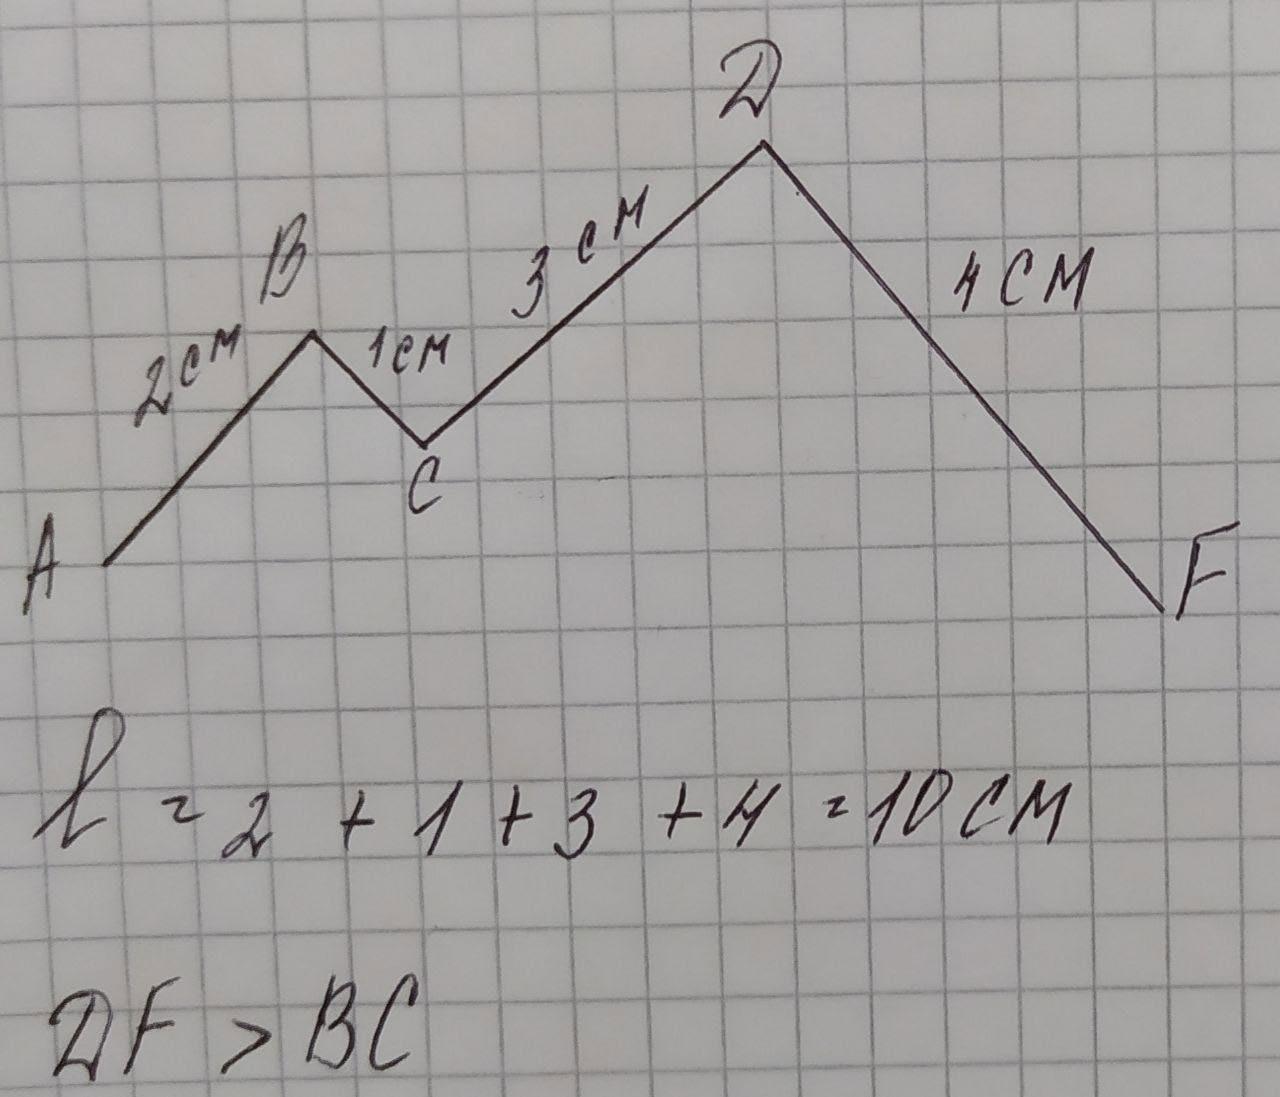 D
B
3 см
4 см
2 см
1 см
C
A
F
l = 2 + 1 + 3 + 4 = 10 см
DF > BC